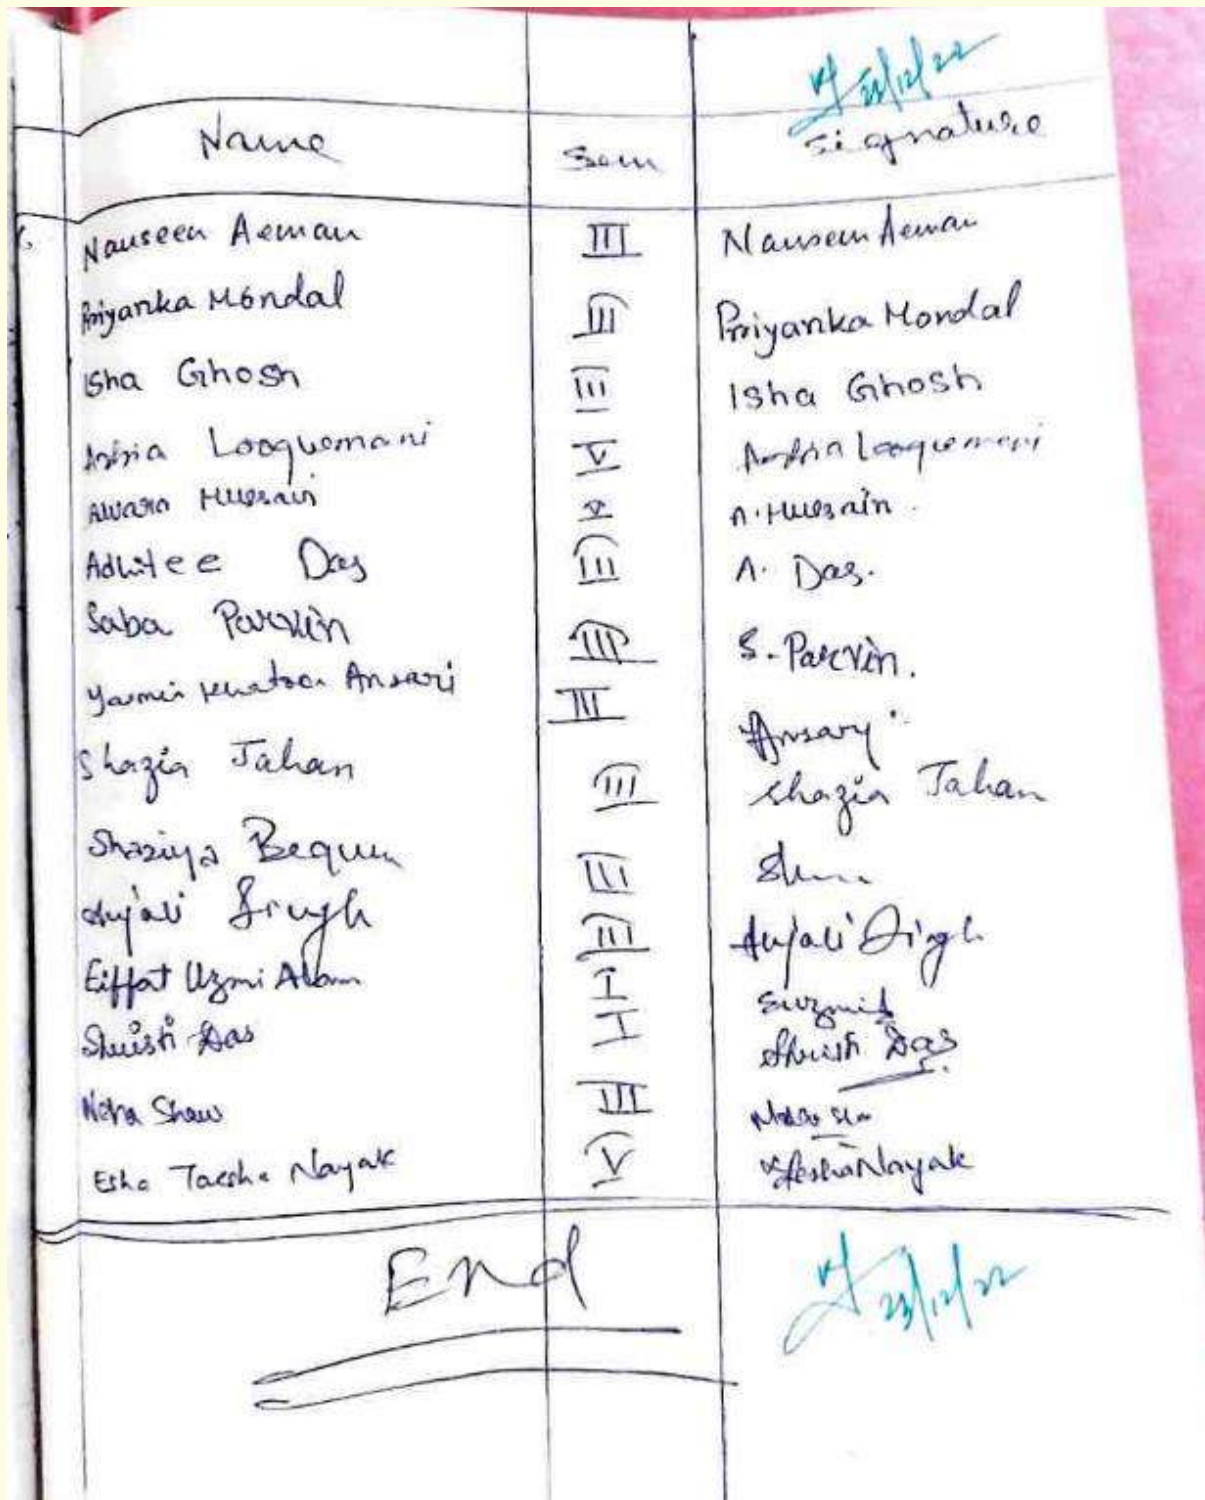 23/12/22
Name Sem Signature
Nauseen Aeman III Nauseen Aeman
Priyanka Mondal III Priyanka Mondal
Isha Ghosh III Isha Ghosh
Looquemani V Looquemani
Hussain V A. Hussain.
Adhitee Das III A. Das.
Saba Parvin III S. Parvin.
Yasmin Khatoon Ansari III Ansary
Shazia Jahan III Shazia Jahan
Shaziya Begum III
Anjali Singh III Anjali Singh
Eiffat Uzmi Alam I
Shristi Das I Shristi Das
Neha Shaw III
Esha Taesha Nayak V Nayak
End
23/12/22